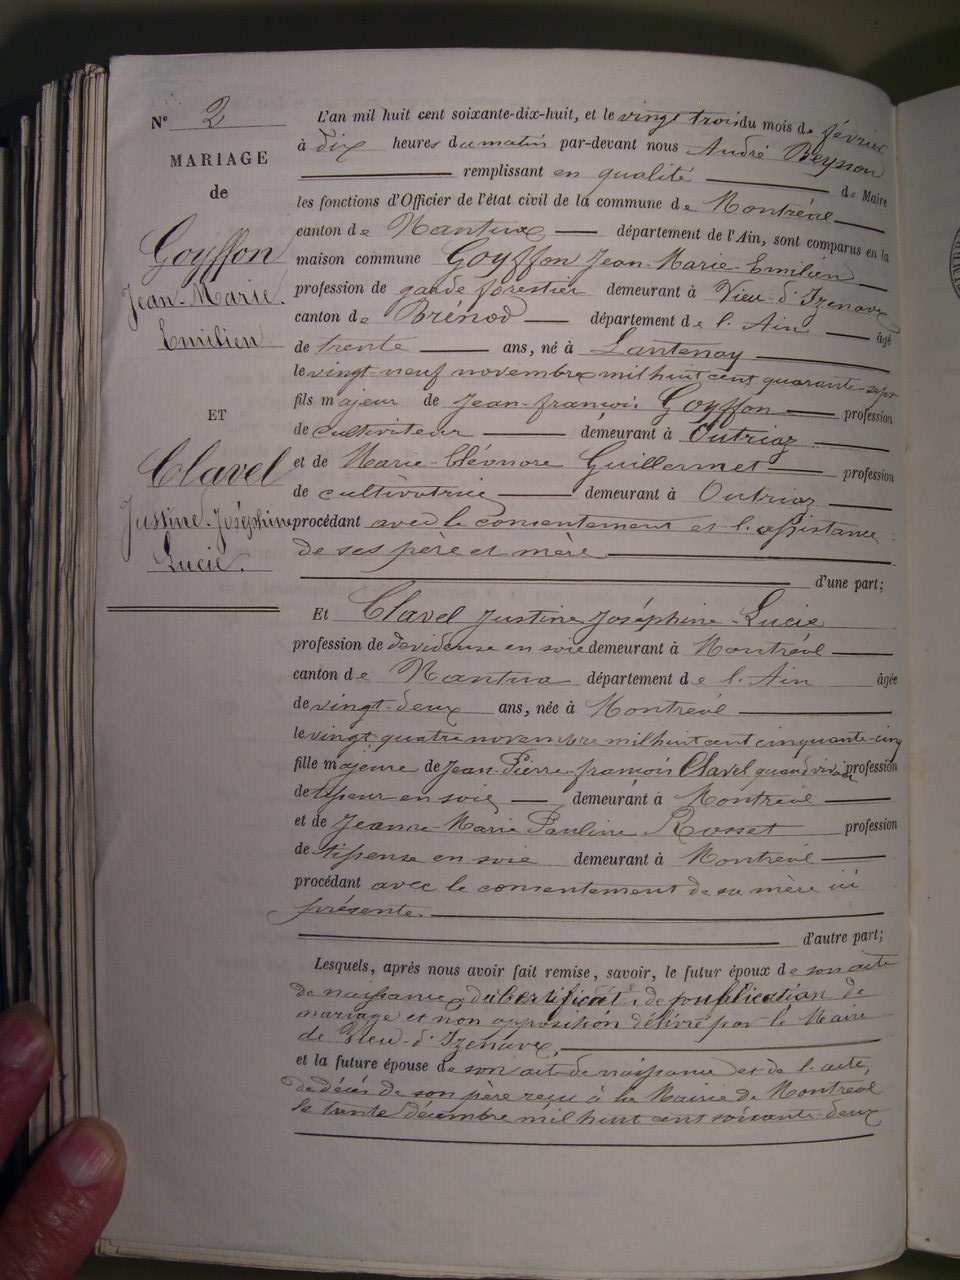 N° 2
MARIAGE
de
Goyffon
Jean-Marie
Emilien
ET
Clavel
Justine-Joséphine
Lucie.
L'an mil huit cent soixante-dix-huit, et le vingt trois du mois de février
à dix heures du matin par-devant nous André Beysson
remplissant en qualité de Maire
les fonctions d'Officier de l'état civil de la commune de Montréal
canton de Nantua département de l'Ain, sont comparus en la
maison commune Goyffon Jean-Marie-Emilien
profession de garde forestier demeurant à Vieu-d'Izenave
canton de Brénod département de l'Ain âgé
de trente ans, né à Lantenay
le vingt-neuf novembre mil huit cent quarante-sept
fils majeur de Jean-françois Goyffon profession
de cultivateur demeurant à Outriaz
et de Marie-Cléonore Guillermet profession
de cultivatrice demeurant à Outriaz
procédant avec le consentement et l'assistance
de ses père et mère
d'une part;
Et Clavel Justine Joséphine-Lucie
profession de devideuse en soie demeurant à Montréal
canton de Nantua département de l'Ain âgée
de vingt-deux ans, née à Montréal
le vingt quatre novembre mil huit cent cinquante-cinq
fille majeure de Jean-Pierre-françois Clavel quand vivait profession
de tisseur en soie demeurant à Montréal
et de Jeanne-Marie Pauline Rosset profession
de tisseuse en soie demeurant à Montréal
procédant avec le consentement de sa mère ici
présente.
d'autre part;
Lesquels, après nous avoir fait remise, savoir, le futur époux de son acte
de naissance du certificat de publication de
mariage et non opposition délivré par le Maire
de Vieu-d'Izenave,
et la future épouse de son acte de naissance et de l'acte
de décès de son père reçu à la Mairie de Montréal
le trente décembre mil huit cent soixante-deux